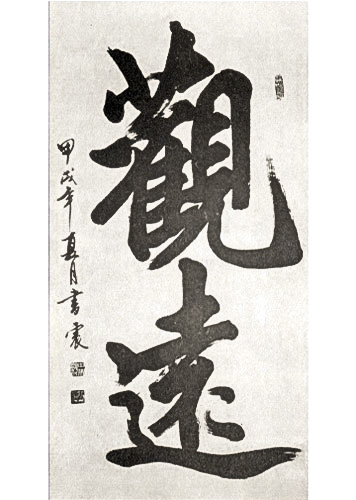 觀遠
甲戌年夏月書震